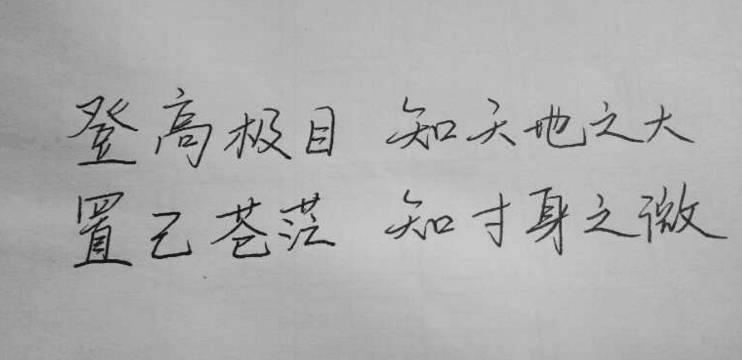 登高极目 知天地之大
置己苍茫 知寸身之微